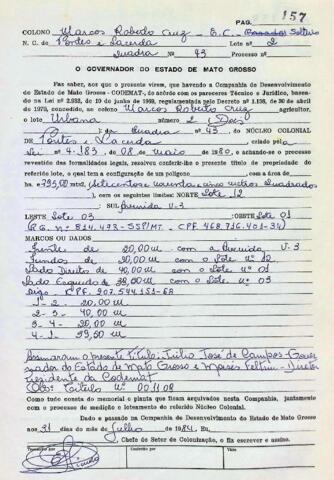 PAG. 157
COLONO Marcos Roberto Cruz - E.C. Solteiro
N. C. de Pontes e Lacerda Lote n.º 2
Quadra Nº 43 Processo n.º
O GOVERNADOR DO ESTADO DE MATO GROSSO
Faz saber, aos que o presente virem, que havendo a Companhia de Desenvolvimento
do Estado de Mato Grosso - CODEMAT, de acordo com os pareceres Técnico e Jurídico, basea-
dos na Lei n.º 2.932, de 19 de junho de 1969, regulamentada pelo Decreto n.º 1.138, de 30 de abril
de 1973, concedido, ao colono Marcos Roberto Cruz agricultor,
o lote Urbana número 2 (Dois)
da Quadra Nº 43. DO NÚCLEO COLONIAL
DE Pontes e Lacerda criado pela
Lei nº 4.183 de 08 de maio de 1980, e achando-se o processo
revestido das formalidades legais, resolveu conferir-lhe o presente título de propriedade
do referido lote, o qual tem a configuração de um polígono com a área de
795,00 (Setecentos noventa cinco metros Quadrados
), com os seguintes limites: NORTE Lote 12
SUL Avenida V-3
LESTE Lote 03 OESTE Lote 01
(R.G. nº 814.493-SSP/MT. CPF 468.716.401-34)
MARCOS OU DADOS
Frente de 20,00 m com a Avenida V-3
Fundos de 20,00 m com o Lote Nº 12
Lado Direito de 40,00 m com o Lote nº 01
Lado Esquerdo de 39,50 m com o Lote nº 03
Digo CPF. 907.544.151-68
1-2 - 20,00 m
2-3 - 40,00 m
3-4 - 20,00 m
4-1 - 39,50 m
Assinaram o presente Título: Júlio José de Campos - Gover
nador do Estado de Mato Grosso e Moises Feltrin - Diretor
Presidente da Codemat
Obs: Título Nº 00.11.08
Como tudo consta do memorial e planta que ficam arquivados nesta Companhia, juntamente
com o processo de medição e loteamento do referido Núcleo Colonial.
Dado e passado na Companhia de Desenvolvimento do Estado de Mato Grosso
aos 31 dias de Julho de 1984. Eu,
, Chefe do Setor de Colonização, o fiz escrever e assino.
Transcrito por Conferido Visto